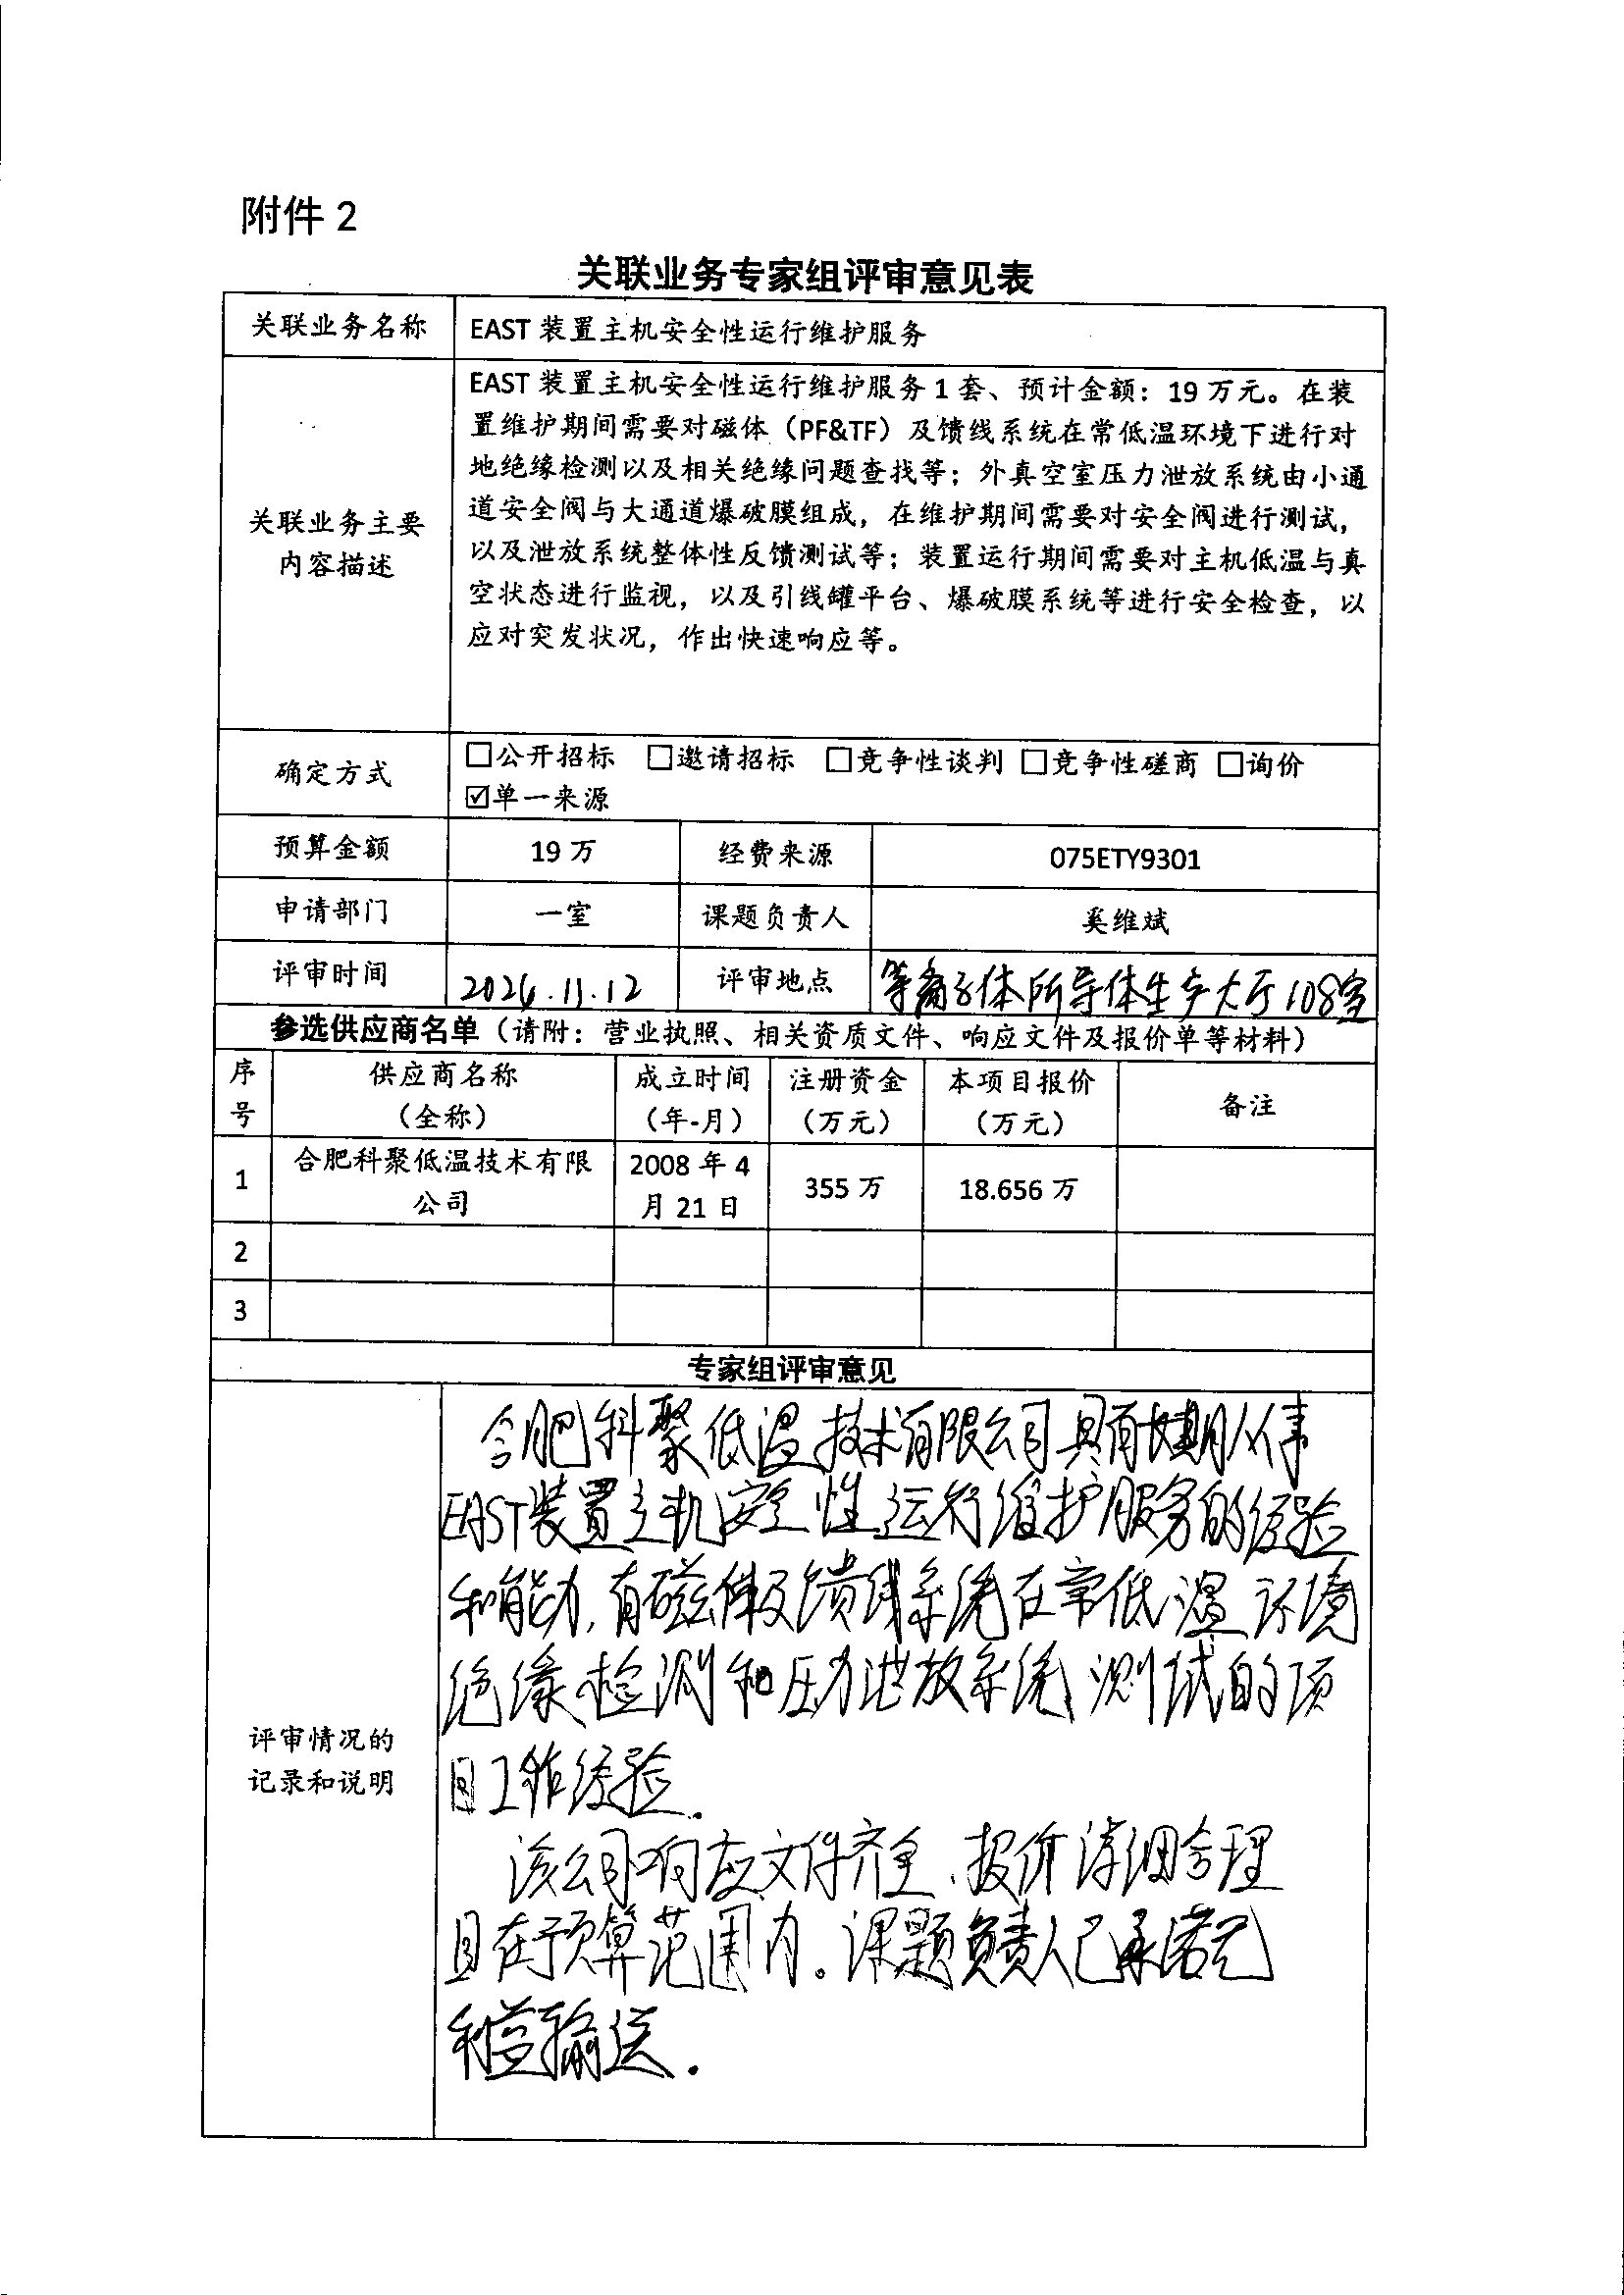 附件 2
关联业务专家组评审意见表
关联业务名称
EAST 装置主机安全性运行维护服务
关联业务主要
内容描述
EAST 装置主机安全性运行维护服务 1 套、预计金额：19 万元。在装
置维护期间需要对磁体（PF&TF）及馈线系统在常低温环境下进行对
地绝缘检测以及相关绝缘问题查找等；外真空室压力泄放系统由小通
道安全阀与大通道爆破膜组成，在维护期间需要对安全阀进行测试，
以及泄放系统整体性反馈测试等；装置运行期间需要对主机低温与真
空状态进行监视，以及引线罐平台、爆破膜系统等进行安全检查，以
应对突发状况，作出快速响应等。
确定方式
☐公开招标 ☐邀请招标 ☐竞争性谈判 ☐竞争性磋商 ☐询价
☑单一来源
预算金额 19 万 经费来源 075ETY9301
申请部门 一室 课题负责人 奚维斌
评审时间 2024.11.12 评审地点 等离子体所导体生产大厅108室
参选供应商名单（请附：营业执照、相关资质文件、响应文件及报价单等材料）
序号
供应商名称
（全称）
成立时间
（年-月）
注册资金
（万元）
本项目报价
（万元）
备注
1
合肥科聚低温技术有限
公司
2008 年 4
月 21 日
355 万
18.656 万
2
3
专家组评审意见
评审情况的
记录和说明
合肥科聚低温技术有限公司具有长期从事
EAST装置主机安全性运行维护服务的经验
和能力,有磁体及馈线系统在常低温环境
绝缘检测和压力泄放系统测试的项
目工作经验.
该公司响应文件齐全、报价详细合理
且在预算范围内。课题负责人已承诺无
利益输送.